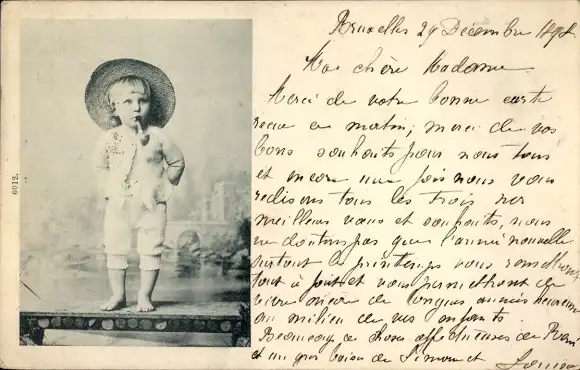 Bruxelles 29 Décembre 1898
Ma chère Madame
Merci de votre bonne carte
recue ce matin, merci de vos
bons souhaits pour nous tous
et encore une fois nous vous
redisons tous les trois nos
meilleurs vœux et souhaits, nous
ne doutons pas que l'année nouvelle
surtout le printemps vous remettront
tout à fait et vous permettront de
vivre encore de longues années heureuses
au milieu de vos enfants
Beaucoup de choses affectueuses de René
et un gros baiser de Simone et
6012.